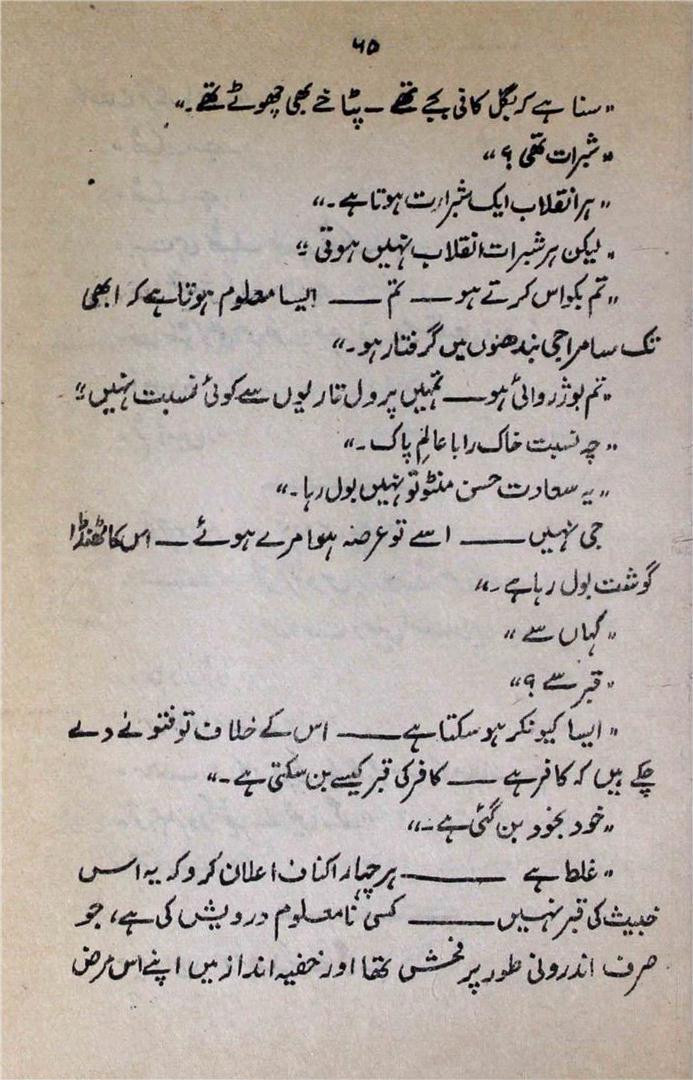 ۶۵
"سنا ہے کہ بگل کافی بجے تھے - پٹاخے بھی چھوٹے تھے۔"
"شبرات تھی؟"
"ہر انقلاب ایک شبرات ہوتا ہے۔"
"لیکن ہر شبرات انقلاب نہیں ہوتی"
"تم بکواس کرتے ہو —— تم —— ایسا معلوم ہوتا ہے کہ ابھی
تک سامراجی بندھنوں میں گرفتار ہو۔"
"تم بوژروائی ہو —— تمہیں پرولتاریوں سے کوئی نسبت نہیں"
"چہ نسبت خاک را با عالمِ پاک۔"
"یہ سعادت حسن منٹو تو نہیں بول رہا۔"
جی نہیں —— اسے تو عرصہ ہوا مرے ہوئے — اس کا ٹھنڈا
گوشت بول رہا ہے۔"
"کہاں سے"
"قبر سے؟"
"ایسا کیونکر ہو سکتا ہے —— اس کے خلاف تو فتوے دے
چکے ہیں کہ کافر ہے —— کافر کی قبر کیسے بن سکتی ہے۔"
"خود بخود بن گئی ہے۔"
"غلط ہے —— ہر چہار اکناف اعلان کرو کہ یہ اس
خبیث کی قبر نہیں —— کسی نامعلوم درویش کی ہے، جو
صرف اندرونی طور پر فحش تھا اور خفیہ انداز میں اپنے اس مرض